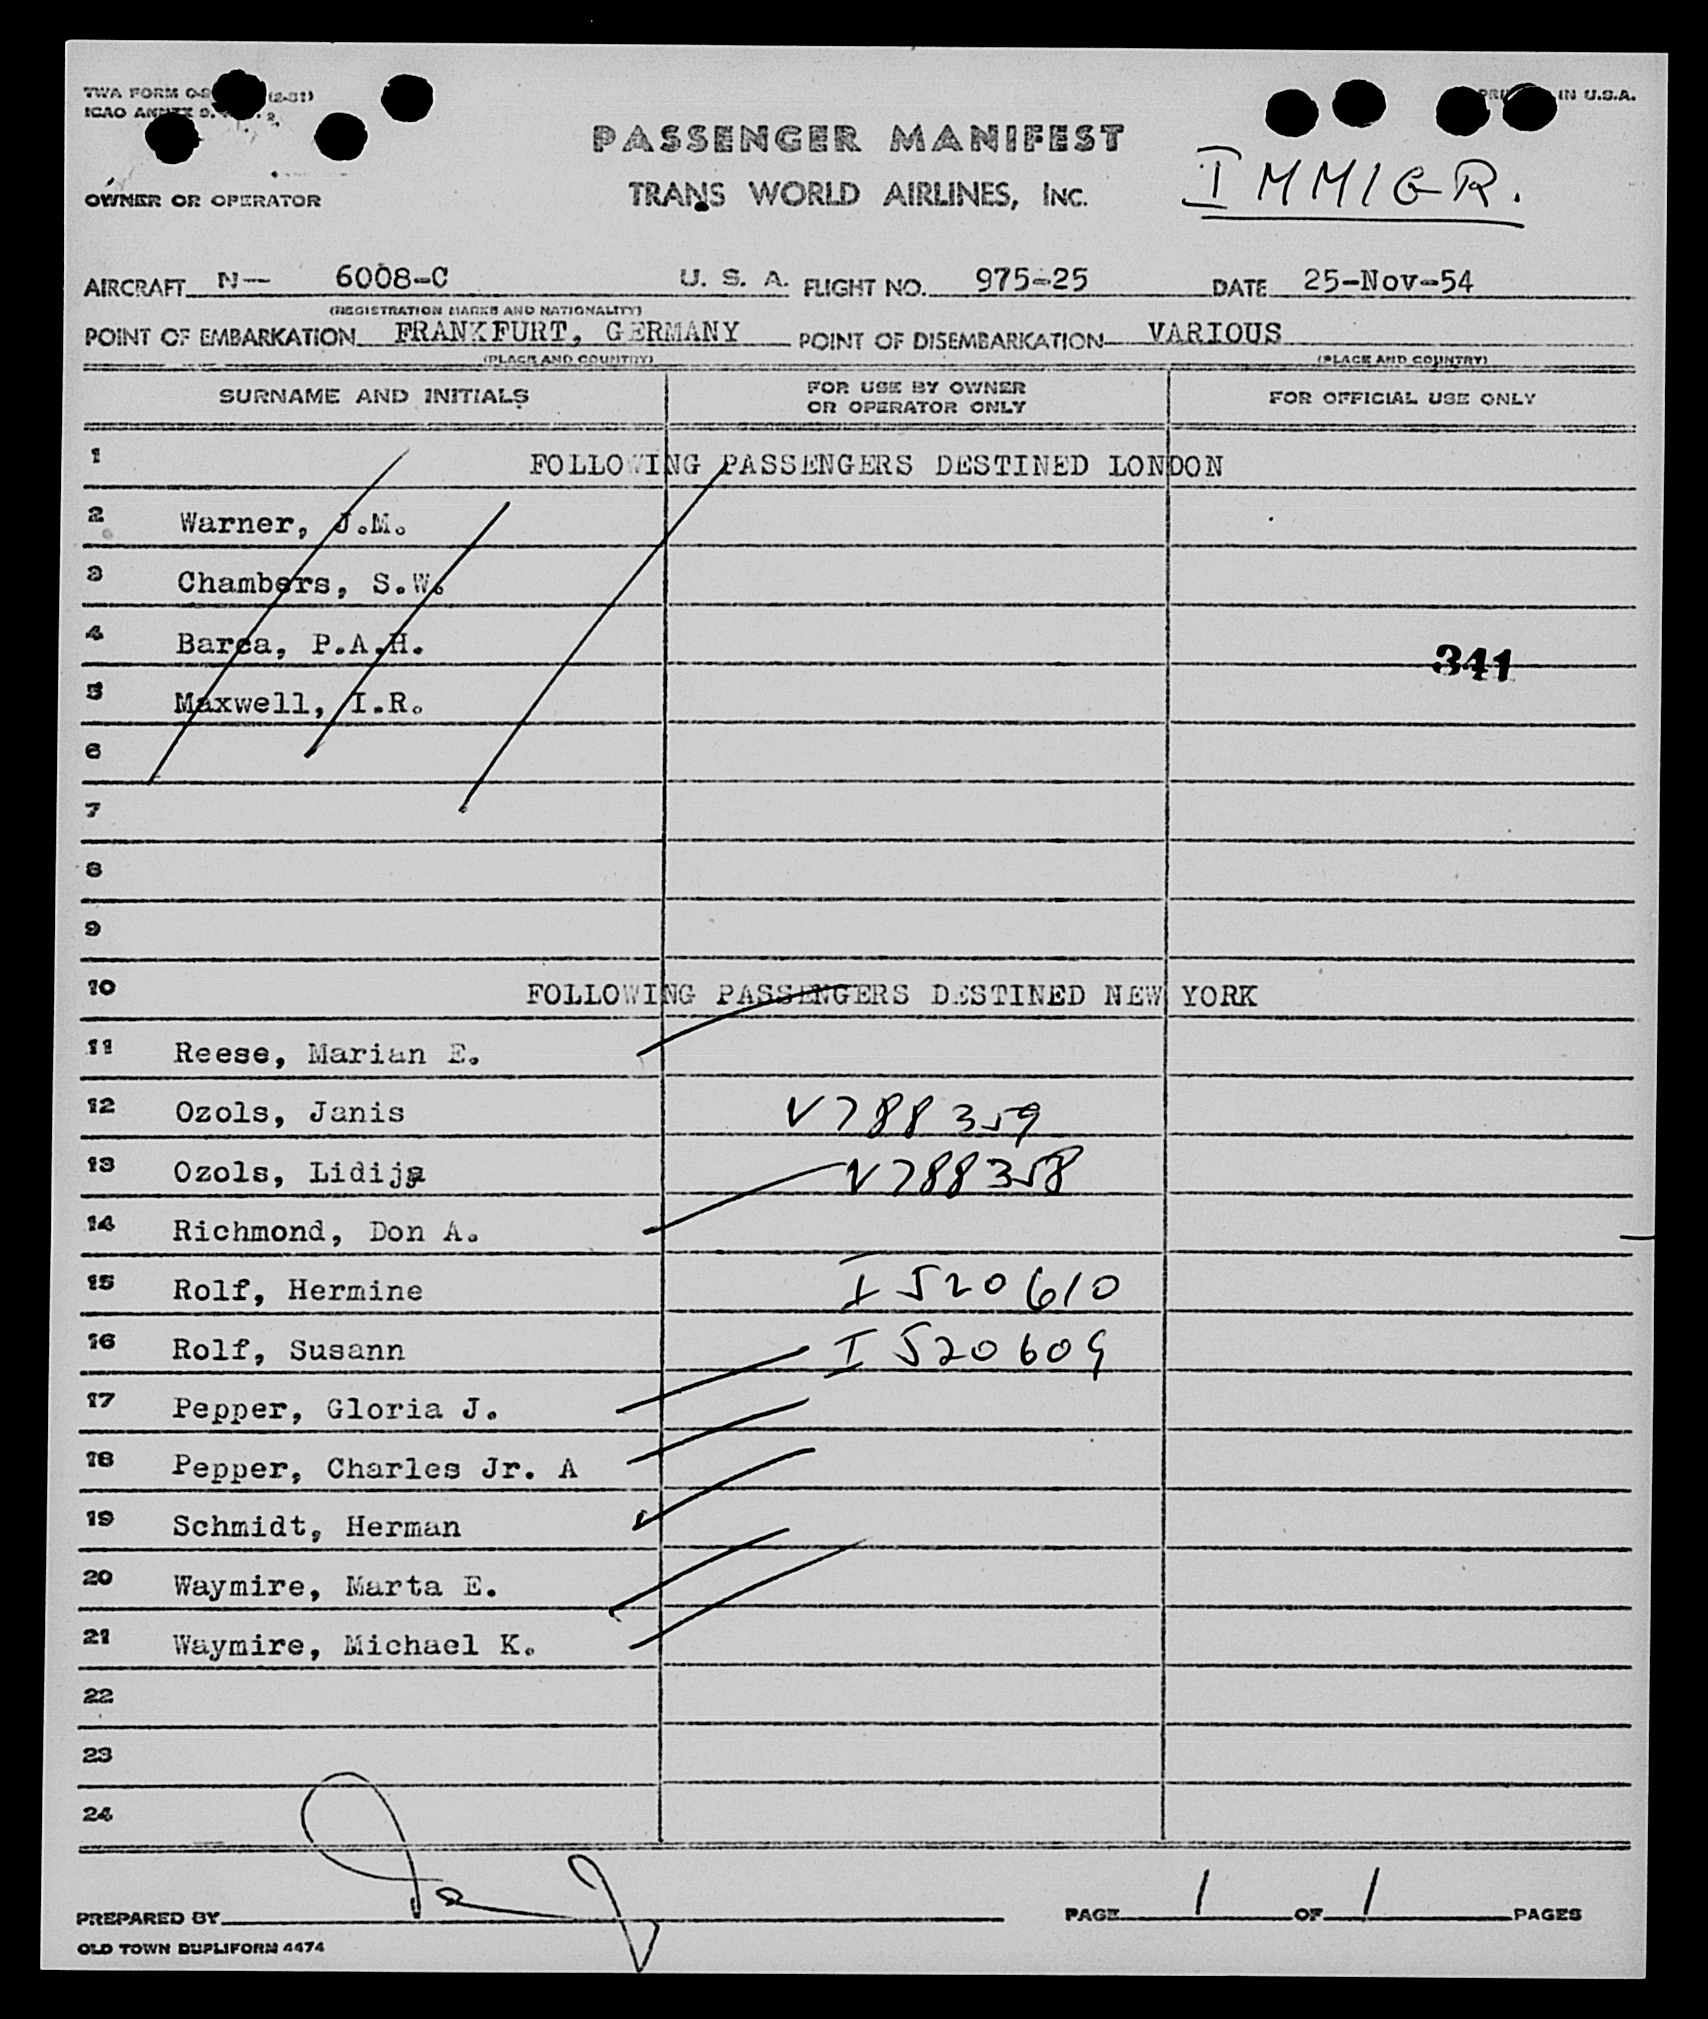 TWA FORM (2-51) PRINTED IN U.S.A.
ICAO ANNEX 9.
PASSENGER MANIFEST
IMMIGR.
OWNER OR OPERATOR TRANS WORLD AIRLINES, INC.
AIRCRAFT N— 6008-C U. S. A. FLIGHT NO. 975-25 DATE 25-Nov-54
(REGISTRATION MARKS AND NATIONALITY)
POINT OF EMBARKATION FRANKFURT, GERMANY POINT OF DISEMBARKATION VARIOUS
(PLACE AND COUNTRY) (PLACE AND COUNTRY)
SURNAME AND INITIALS FOR USE BY OWNER OR OPERATOR ONLY FOR OFFICIAL USE ONLY
1 FOLLOWING PASSENGERS DESTINED LONDON
2 Warner, J.M.
3 Chambers, S.W.
4 Barca, P.A.H. 341
5 Maxwell, I.R.
6
7
8
9
10 FOLLOWING PASSENGERS DESTINED NEW YORK
11 Reese, Marian E.
12 Ozols, Janis V788359
13 Ozols, Lidija V788358
14 Richmond, Don A.
15 Rolf, Hermine I 520610
16 Rolf, Susann I 520609
17 Pepper, Gloria J.
18 Pepper, Charles Jr. A
19 Schmidt, Herman
20 Waymire, Marta E.
21 Waymire, Michael K.
22
23
24
PREPARED BY PAGE 1 OF 1 PAGES
OLD TOWN DUPLIFORM 4474